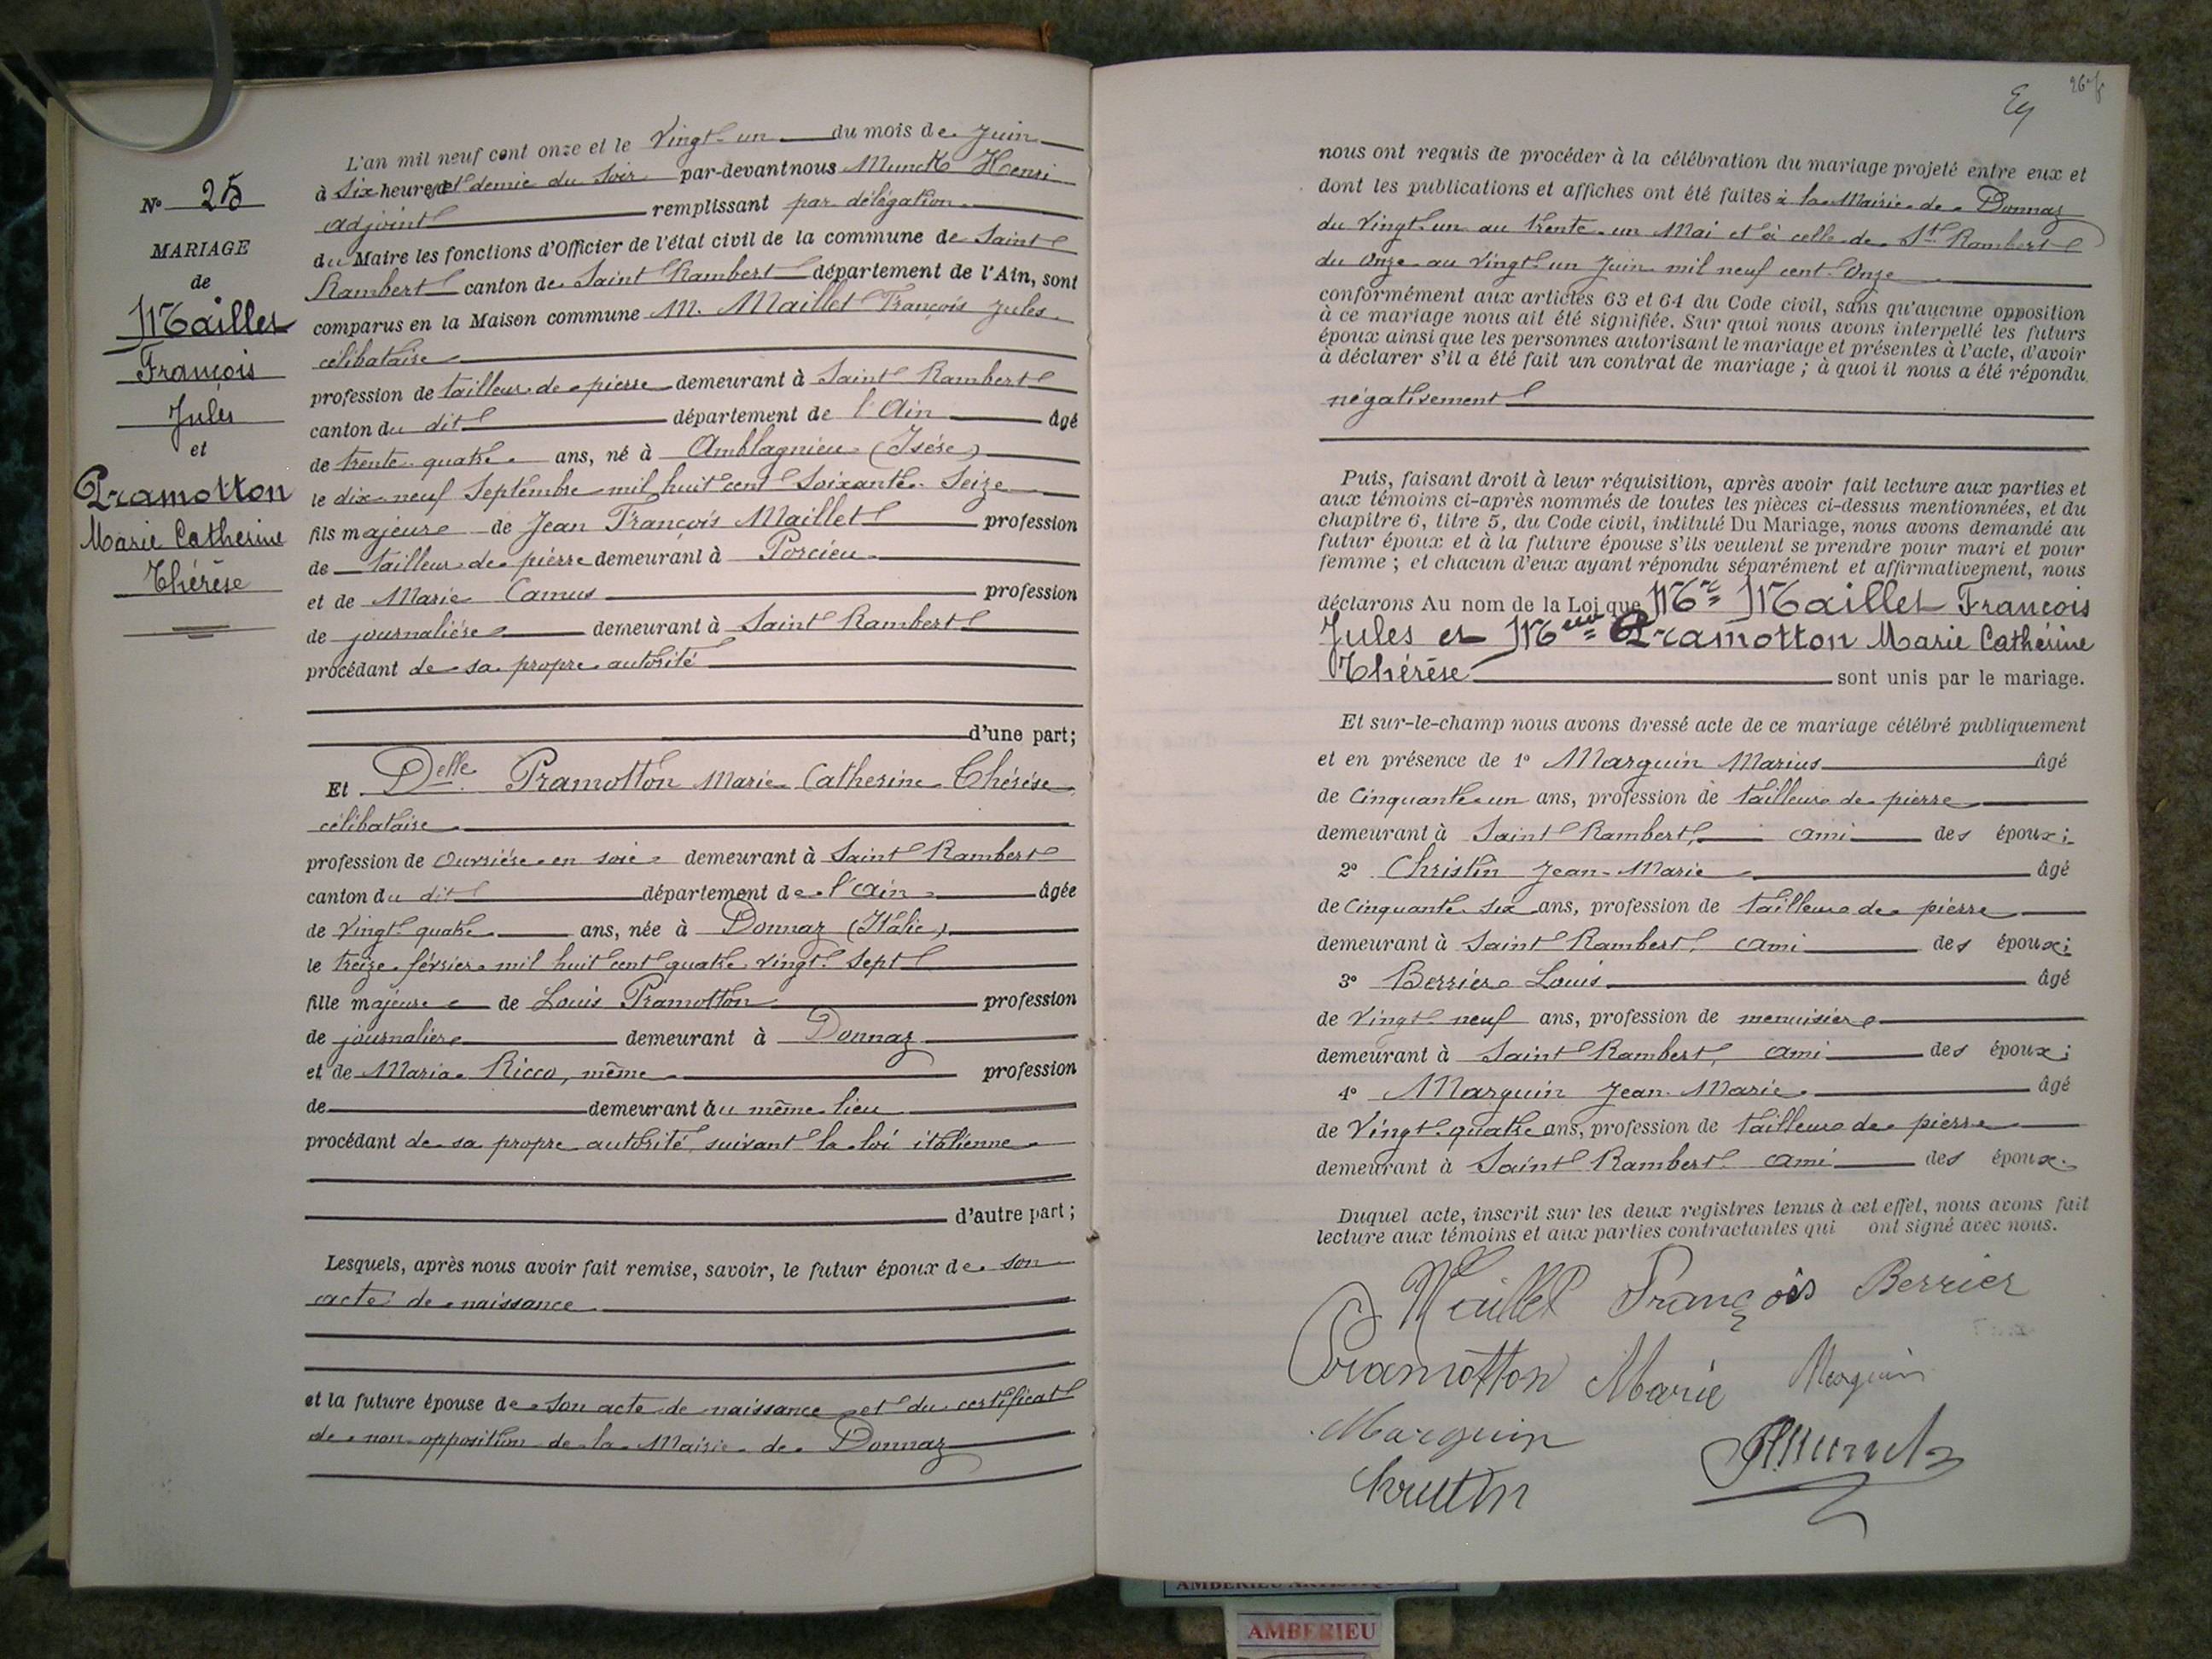 N° 25
MARIAGE
de
Maillet
François
Jules
et
Pramotton
Marie Catherine
Thérèse
L'an mil neuf cent onze et le vingt-un du mois de Juin
à six heures et demie du soir par-devant nous Munck Henri
adjoint remplissant par délégation
du Maire les fonctions d'Officier de l'état civil de la commune de Saint
Rambert canton de Saint Rambert département de l'Ain, sont
comparus en la Maison commune M. Maillet François Jules
célibataire
profession de tailleur de pierre demeurant à Saint Rambert
canton du dit département de l'Ain âgé
de trente quatre ans, né à Amblagnieu (Isère)
le dix-neuf Septembre mil huit cent Soixante Seize
fils majeur de Jean François Maillet profession
de tailleur de pierre demeurant à Porcieu
et de Marie Camus profession
de journalière demeurant à Saint Rambert
procédant de sa propre autorité
d'une part;
Et Delle Pramotton Marie Catherine Thérèse
célibataire
profession de ouvrière en soie demeurant à Saint Rambert
canton du dit département de l'Ain âgée
de vingt quatre ans, née à Donnaz (Italie)
le treize février mil huit cent quatre vingt Sept
fille majeure de Louis Pramotton profession
de journalier demeurant à Donnaz
et de Maria Ricco, même profession
de demeurant au même lieu
procédant de sa propre autorité suivant la loi italienne
d'autre part;
Lesquels, après nous avoir fait remise, savoir, le futur époux de son
acte de naissance
et la future épouse de son acte de naissance et du certificat
de non opposition de la Mairie de Donnaz
nous ont requis de procéder à la célébration du mariage projeté entre eux et
dont les publications et affiches ont été faites à la Mairie de Donnaz
du vingt-un au trente-un Mai et à celle de St Rambert
du onze au vingt-un Juin mil neuf cent onze
conformément aux articles 63 et 64 du Code civil, sans qu'aucune opposition
à ce mariage nous ait été signifiée. Sur quoi nous avons interpellé les futurs
époux ainsi que les personnes autorisant le mariage et présentes à l'acte, d'avoir
à déclarer s'il a été fait un contrat de mariage; à quoi il nous a été répondu
négativement
Puis, faisant droit à leur réquisition, après avoir fait lecture aux parties et
aux témoins ci-après nommés de toutes les pièces ci-dessus mentionnées, et du
chapitre 6, titre 5, du Code civil, intitulé Du Mariage, nous avons demandé au
futur époux et à la future épouse s'ils veulent se prendre pour mari et pour
femme; et chacun d'eux ayant répondu séparément et affirmativement, nous
déclarons Au nom de la Loi que Mr Maillet François
Jules et Melle Pramotton Marie Cathérine
Thérèse sont unis par le mariage.
Et sur-le-champ nous avons dressé acte de ce mariage célébré publiquement
et en présence de 1° Marguin Marius âgé
de Cinquante un ans, profession de tailleur de pierre
demeurant à Saint Rambert, ami des époux;
2° Christin Jean-Marie âgé
de Cinquante six ans, profession de tailleur de pierre
demeurant à Saint Rambert, ami des époux;
3° Berrier Louis âgé
de vingt neuf ans, profession de menuisier
demeurant à Saint Rambert, ami des époux;
4° Marguin Jean Marie âgé
de vingt quatre ans, profession de tailleur de pierre
demeurant à Saint Rambert ami des époux.
Duquel acte, inscrit sur les deux registres tenus à cet effet, nous avons fait
lecture aux témoins et aux parties contractantes qui ont signé avec nous.
Maillet François Berrier
Pramotton Marie Marguin
Marguin
Christin
AMBERIEU